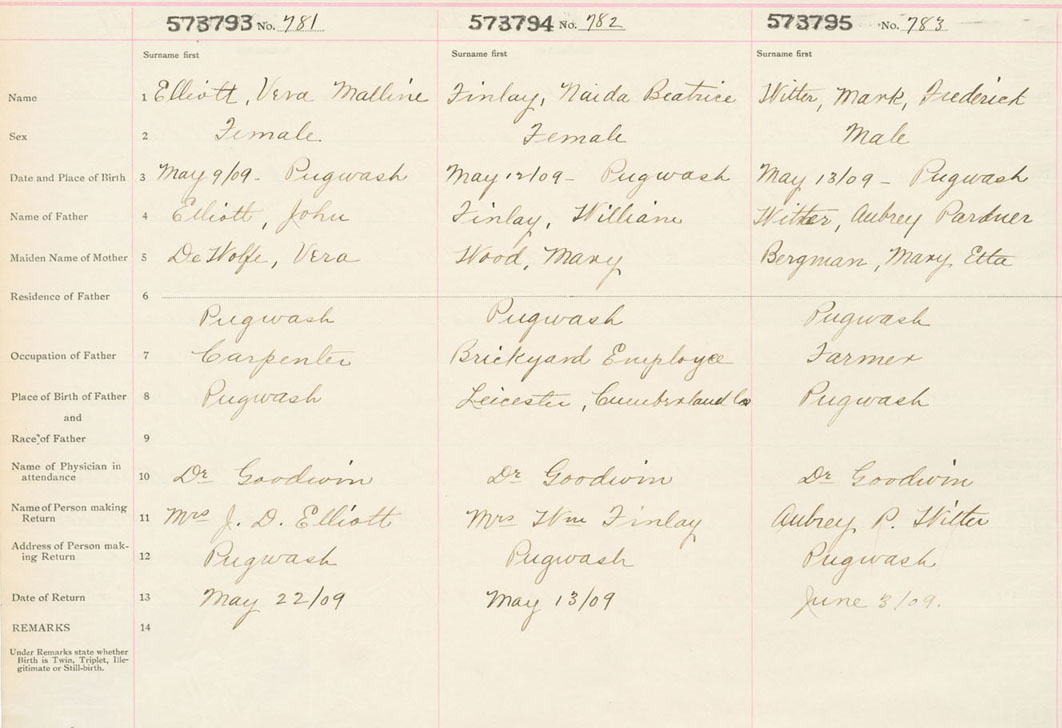 573793 No. 781 573794 No. 782 573795 No. 783
Surname first Surname first Surname first
Name 1 Elliott, Vera Malline Finlay, Naida Beatrice Witter, Mark, Frederick
Sex 2 Female Female Male
Date and Place of Birth 3 May 9/09 - Pugwash May 12/09 - Pugwash May 13/09 - Pugwash
Name of Father 4 Elliott, John Finlay, William Witter, Aubrey Pardner
Maiden Name of Mother 5 DeWolfe, Vera Wood, Mary Bergman, Mary Etta
Residence of Father 6
Pugwash Pugwash Pugwash
Occupation of Father 7 Carpenter Brickyard Employee Farmer
Place of Birth of Father 8 Pugwash Leicester, Cumberland Co Pugwash
and
Race of Father 9
Name of Physician in
attendance 10 Dr Goodwin Dr Goodwin Dr Goodwin
Name of Person making
Return 11 Mrs J. D. Elliott Mrs Wm Finlay Aubrey P. Witter
Address of Person mak-
ing Return 12 Pugwash Pugwash Pugwash
Date of Return 13 May 22/09 May 13/09 June 3/09.
REMARKS 14
Under Remarks state whether
Birth is Twin, Triplet, Ille-
gitimate or Still-birth.